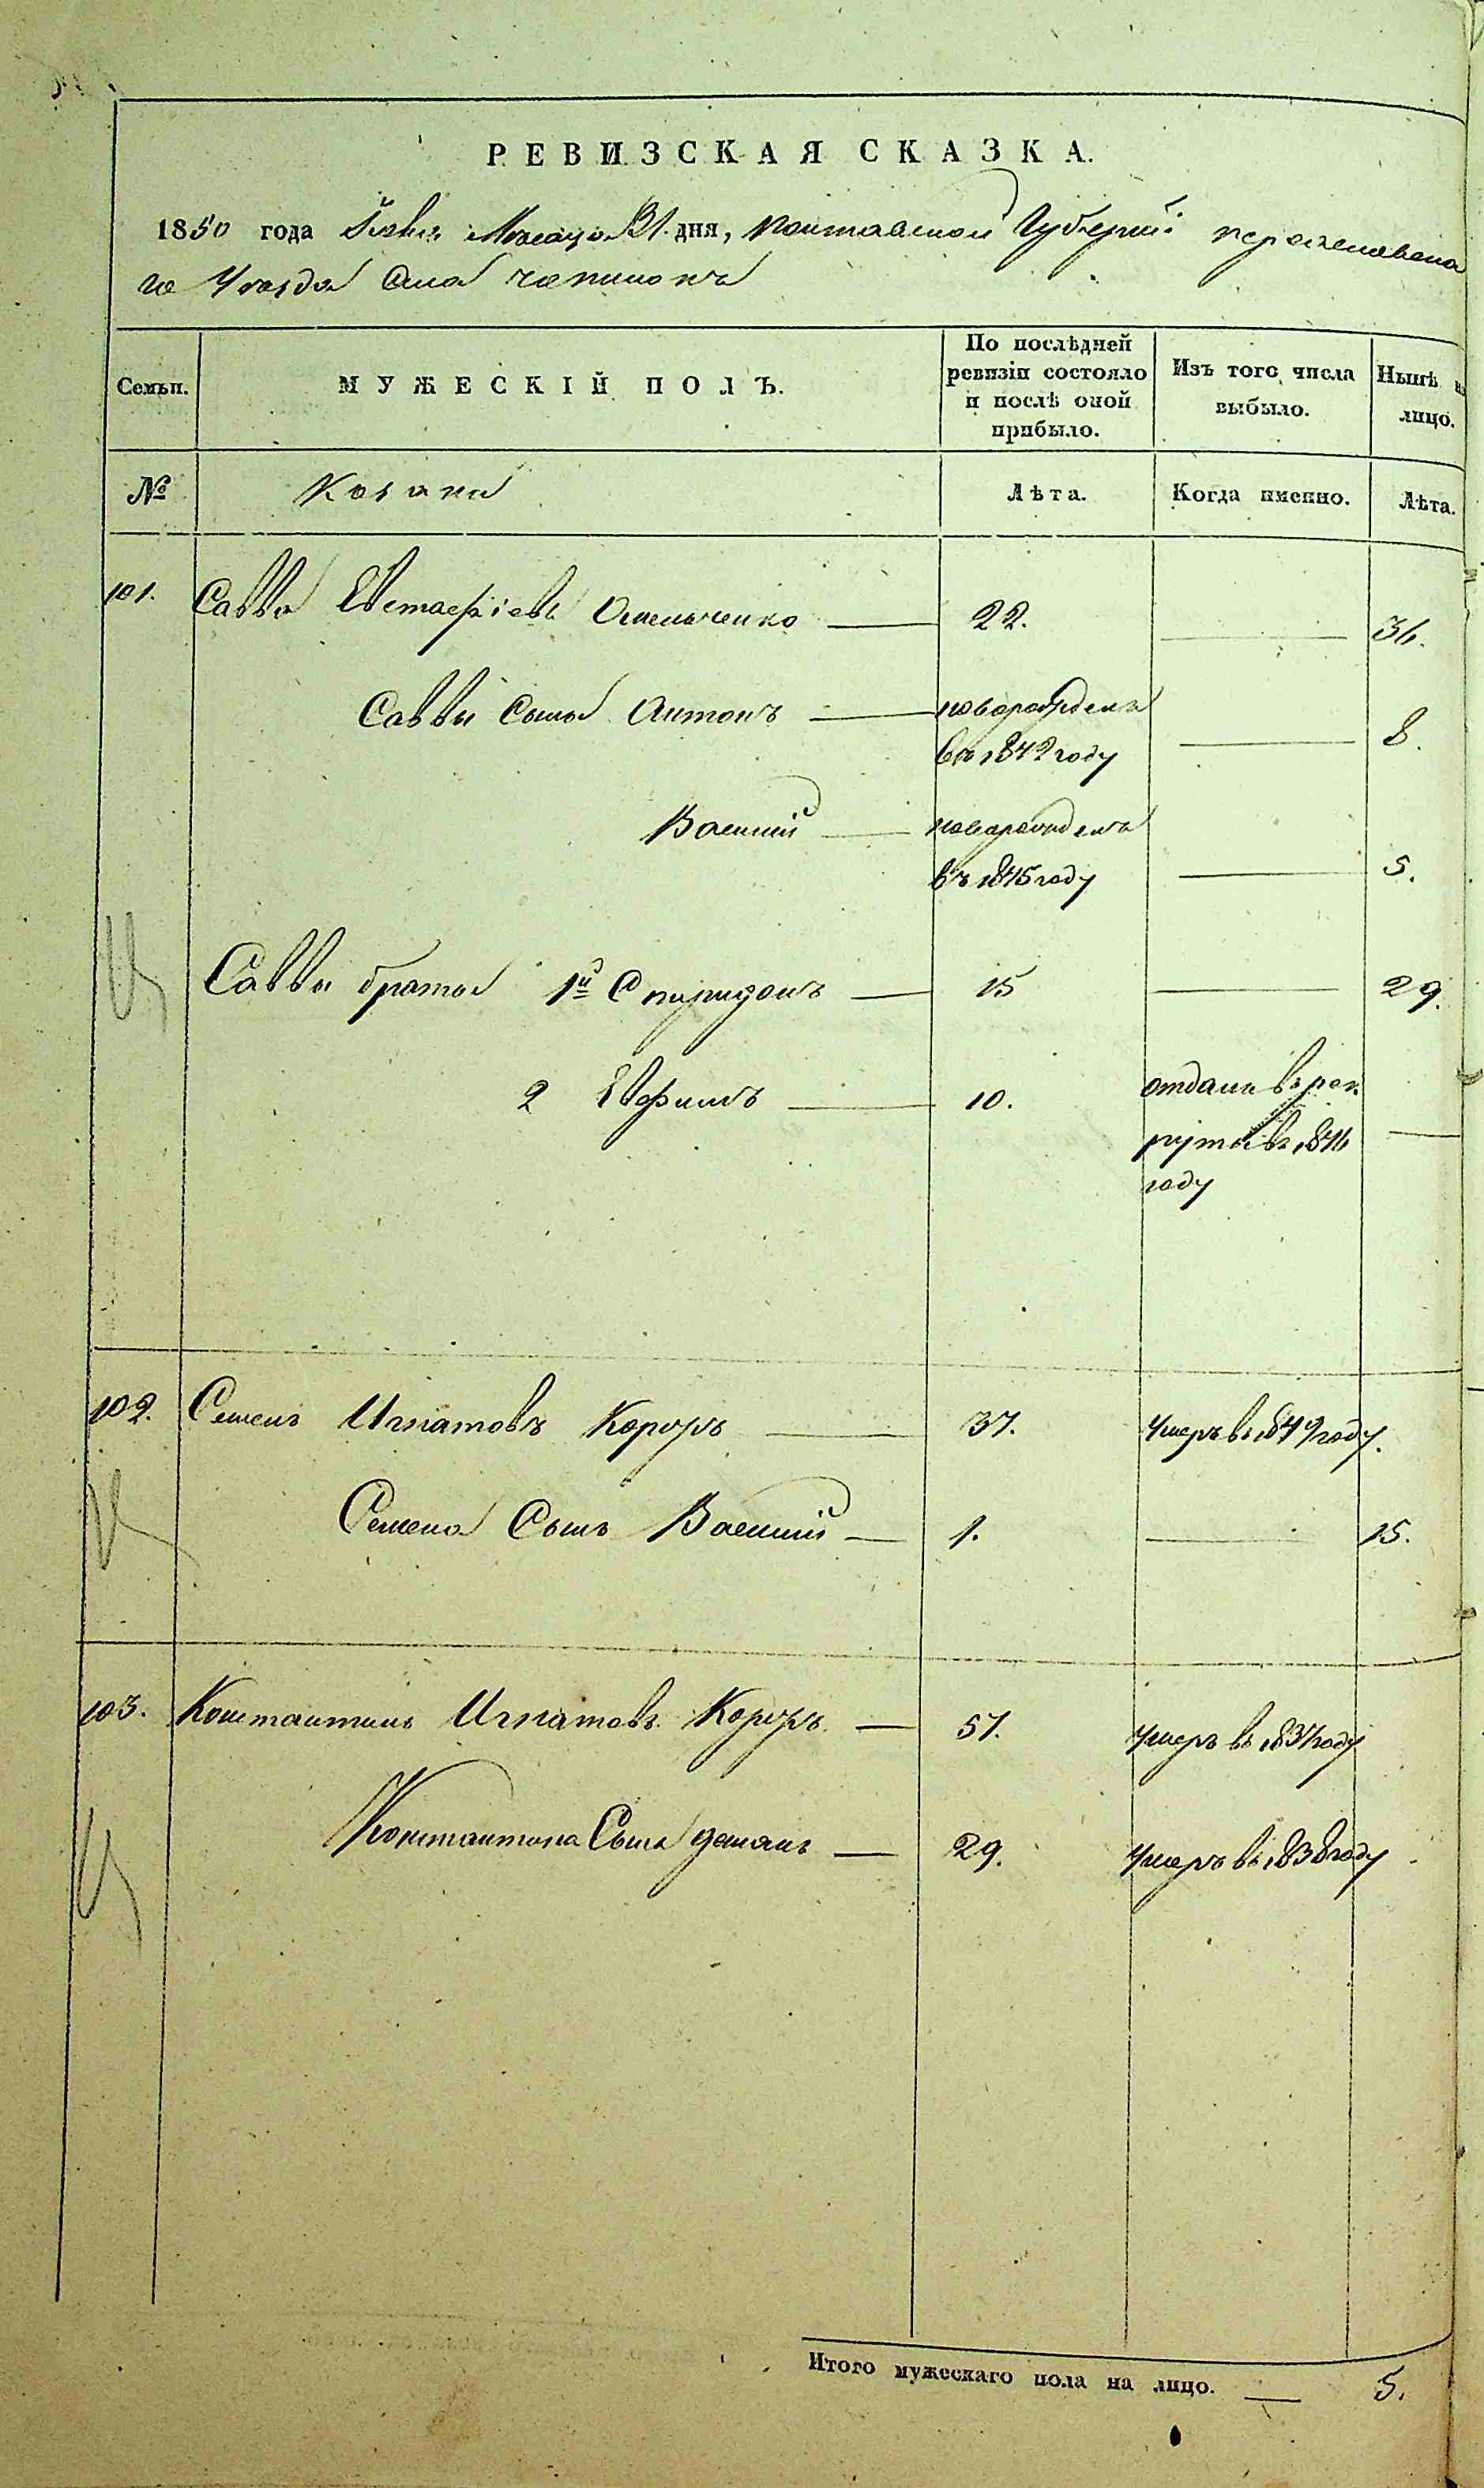 РЕВИЗСКАЯ СКАЗКА.
1850 года Іюля Месяца 31 дня, Полтавской Губерніи Переяславска
го Уезда Села Чопилокъ
Семьи. МУЖЕСКІЙ ПОЛЪ. По послѣдней ревизіи состояло и послѣ оной прибыло. Изъ того числа выбыло. Нынѣ на лицо.
№ Козаки Лѣта. Когда именно. Лѣта.
101. Савва Евстафіевъ Омельченко — 22. — 36.
Саввы сынъ Антонъ — новорожденъ
въ 1842 году — 8.
Василій — новорожденъ
въ 1845 году — 5.
Саввы братья 1й Спиридонъ — 15 — 29.
2 Ефимъ — 10. отданъ въ рек
руты въ 1846 —
году
102. Семенъ Игнатовъ Корорь — 37. умеръ въ 1849 году.
Семена Сынъ Василій — 1. — 15.
103. Константинъ Игнатовъ Корорь — 57. умеръ въ 1837 году
Константина Сынъ Демянъ — 29. умеръ въ 1838 году
Итого мужескаго пола на лицо. — 5.